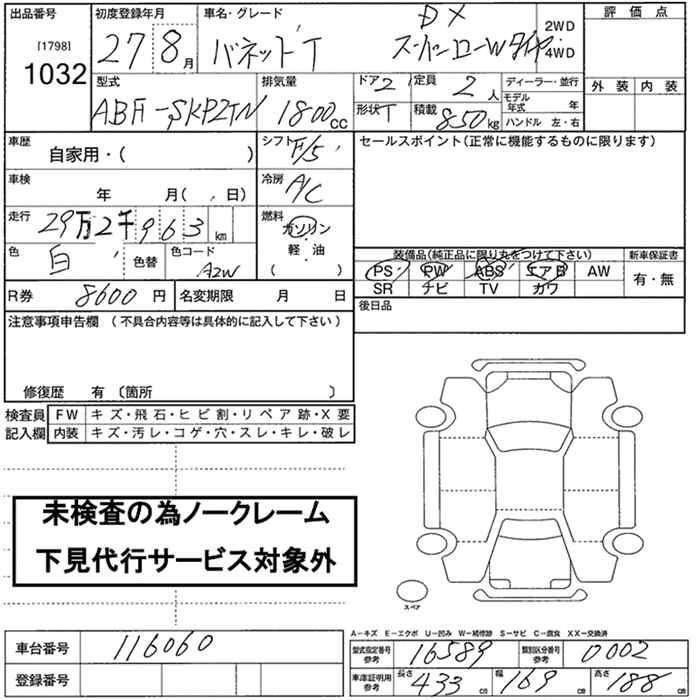 出品番号
[1798]
1032
初度登録年月
27 8月
車名・グレード
バネットT
DX
スーパーローWタイヤ
2WD
・
4WD
評価点
外装 内装
型式
ABF-SKP2TN
排気量
1800cc
ドア 2
形状 T
定員 2人
積載 850kg
ディーラー・並行
モデル年式 年
ハンドル 左・右
車歴
自家用・( )
シフト F/5
セールスポイント(正常に機能するものに限ります)
車検 年 月( . 日)
冷房 A/C
走行 29万2千963km
燃料 ガソリン
・
軽・油
( )
色 白
色替
色コード A2W
装備品(純正品に限り丸をつけて下さい)
新車保証書
PS PW ABS エアB AW
SR ナビ TV カワ
有・無
R券 8600円
名変期限 月 日
後日品
注意事項申告欄(不具合内容等は具体的に記入して下さい)
修復歴 有〔箇所 〕
検査員記入欄
FW キズ・飛石・ヒビ割・リペア跡・X要
内装 キズ・汚レ・コゲ・穴・スレ・キレ・破レ
未検査の為ノークレーム
下見代行サービス対象外
スペア
A-キズ E-エクボ U-凹み W-補修跡 S-サビ C-腐食 XX-交換済
車台番号 116060
登録番号
型式指定番号参考 16589
類別区分番号参考 0002
車庫証明用参考
長さ 433cm
幅 169cm
高さ 188cm